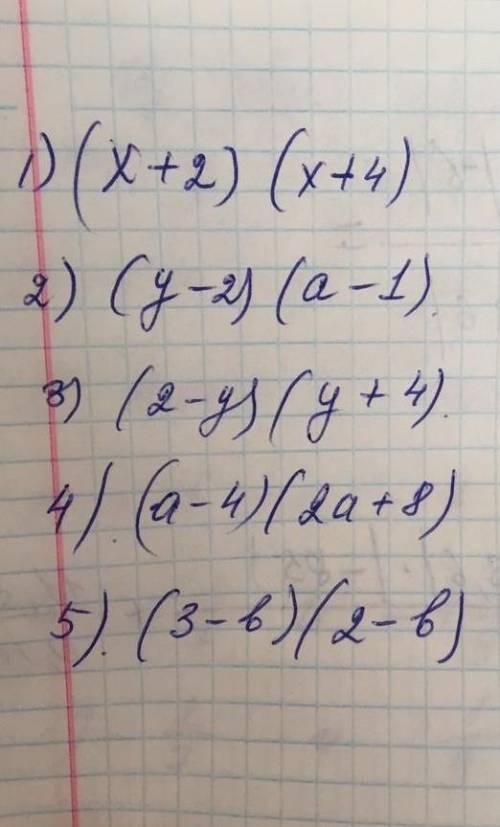 1) (x+2) (x+4)
2) (y-2) (a-1).
3) (2-y) (y+4).
4). (a-4) (2a+8)
5). (3-в) (2-в)